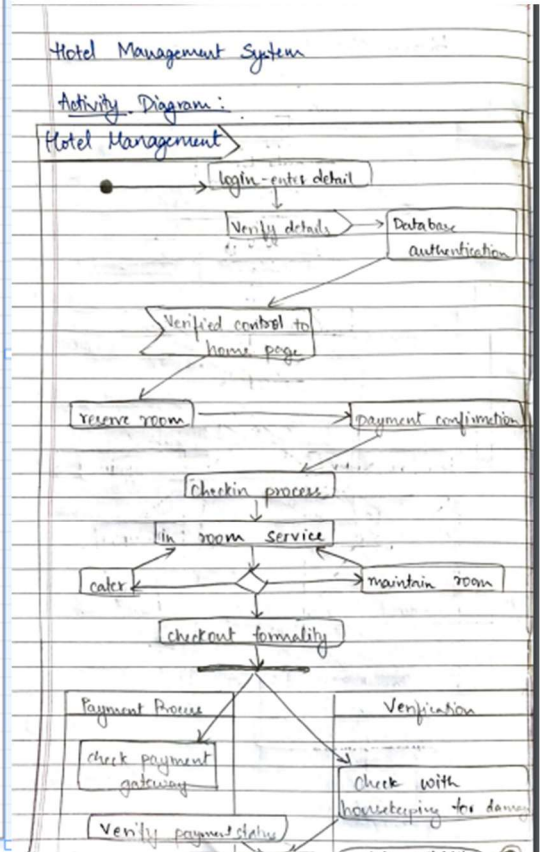 Hotel Management System
Activity Diagram:
Hotel Management
login-enter detail
Verify details
Database
authentication
Verified control to
home page
reserve room
payment confirmation
checkin process
in room service
cater
maintain room
checkout formality
Payment Process
Verification
check payment
gateway
Check with
housekeeping for
Verify payment status